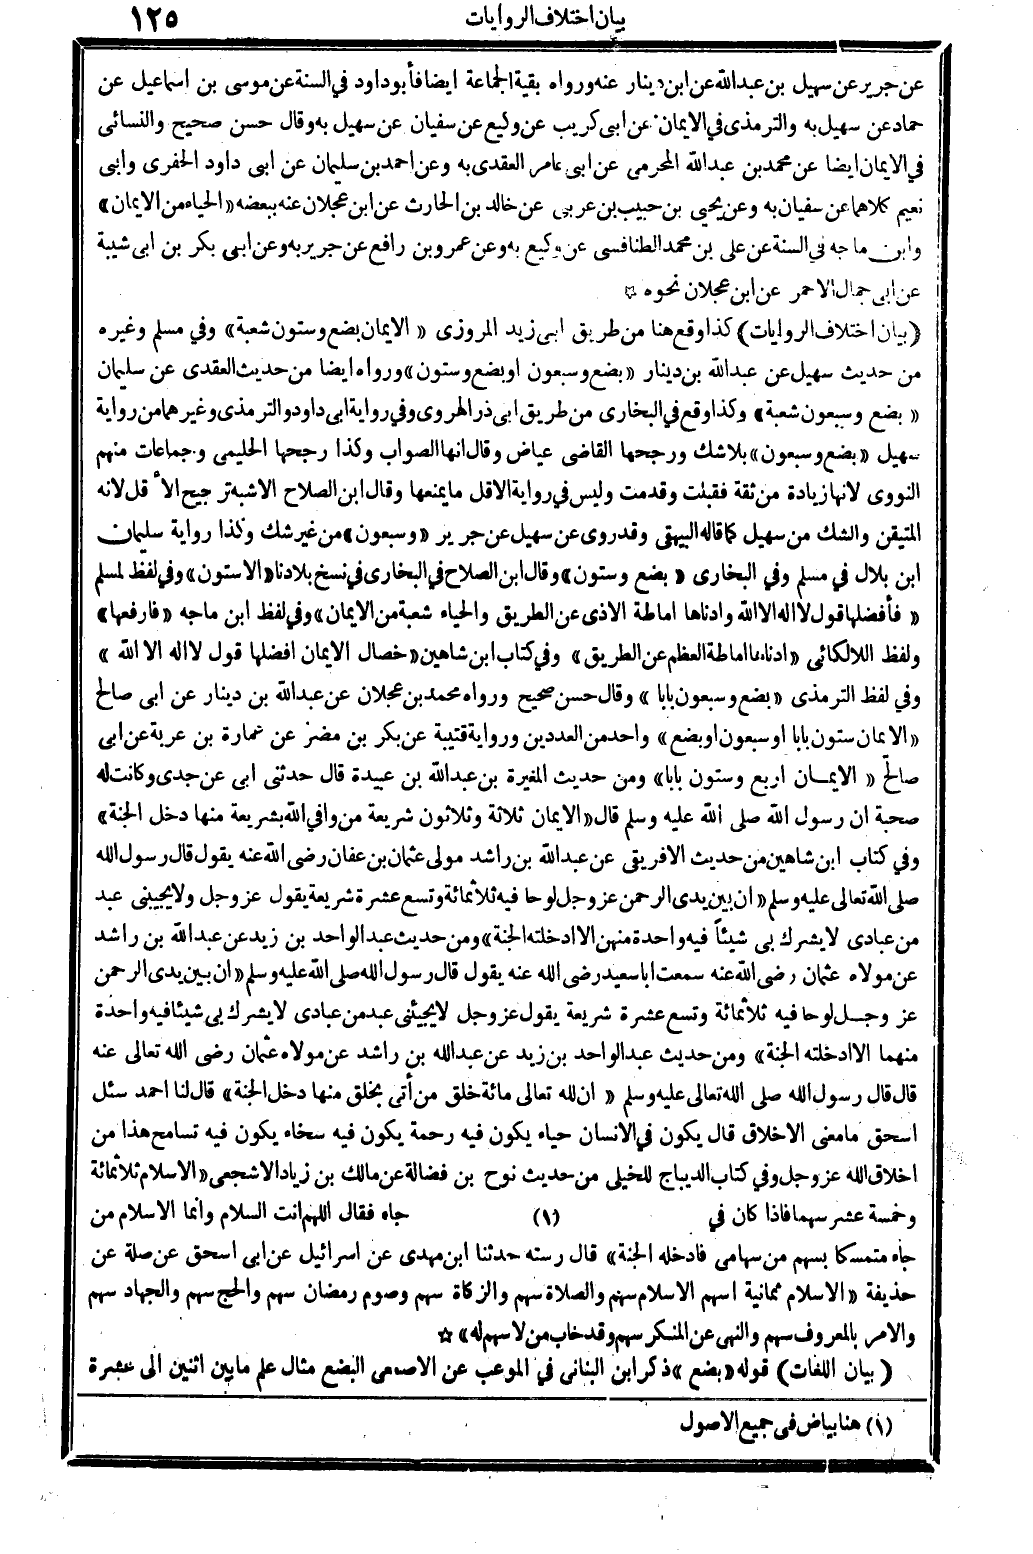 بيان اختلاف الروايات ١٢٥
عن جرير عن سهيل بن عبدالله عن ابن دينار عنه ورواه بقية الجماعة ايضا فأبو داود في السنة عن موسى بن اسماعيل عن
حماد عن سهيل به والترمذى في الايمان عن ابى كريب عن وكيع عن سفيان عن سهيل به وقال حسن صحيح والنسائى
في الايمان ايضا عن محمد بن عبدالله المخرمى عن ابى عامر العقدى به وعن احمد بن سليمان عن ابى داود الحفرى وابى
نعيم كلاهما عن سفيان به وعن يحيى بن حبيب بن عربى عن خالد بن الحارث عن ابن عجلان عنه ببعضه «الحياء من الايمان»
وابن ماجه في السنة عن على بن محمد الطنافسى عن وكيع به وعن عمرو بن رافع عن جرير به وعن ابى بكر بن ابى شيبة
عن ابى جمال الاحمر عن ابن عجلان نحوه ☆
(بيان اختلاف الروايات) كذا وقع هنا من طريق ابى زيد المروزى « الايمان بضع وستون شعبة» وفي مسلم وغيره
من حديث سهيل عن عبدالله بن دينار «بضع وسبعون او بضع وستون» ورواه ايضا من حديث العقدى عن سليمان
« بضع وسبعون شعبة» وكذا وقع في البخارى من طريق ابى ذر الهروى وفي رواية ابى داود والترمذى وغيرهما من رواية
سهيل «بضع وسبعون» بلا شك ورجحها القاضى عياض وقال انها الصواب وكذا رجحها الحليمى وجماعات منهم
النووى لانها زيادة من ثقة فقبلت وقدمت وليس في رواية الاقل ما يمنعها وقال ابن الصلاح الاشبه ترجيح الأقل لانه
المتيقن والشك من سهيل كما قاله البيهقى وقد روى عن سهيل عن جرير «وسبعون» من غير شك وكذا رواية سليمان
ابن بلال في مسلم وفي البخارى « بضع وستون» وقال ابن الصلاح في البخارى في نسخ بلادنا «الاستون» وفي لفظ لمسلم
« فأفضلها قول لااله الاالله وادناها اماطة الاذى عن الطريق والحياء شعبة من الايمان» وفي لفظ ابن ماجه «فارفعها»
ولفظ اللالكائى «ادناها اماطة العظم عن الطريق» وفي كتاب ابن شاهين «خصال الايمان افضلها قول لااله الا الله »
وفي لفظ الترمذى «بضع وسبعون بابا » وقال حسن صحيح ورواه محمد بن عجلان عن عبدالله بن دينار عن ابى صالح
«الايمان ستون بابا او سبعون او بضع» واحد من العددين ورواية قتيبة عن بكر بن مضر عن عمارة بن عربة عن ابى
صالح « الايمان اربع وستون بابا» ومن حديث المغيرة بن عبدالله بن عبيدة قال حدثنى ابى عن جدى وكانت له
صحبة ان رسول الله صلى الله عليه وسلم قال «الايمان ثلاثة وثلاثون شريعة من وافي الله بشريعة منها دخل الجنة»
وفي كتاب ابن شاهين من حديث الافريقى عن عبدالله بن راشد مولى عثمان بن عفان رضى الله عنه يقول قال رسول الله
صلى الله تعالى عليه وسلم «ان بين يدى الرحمن عز وجل لوحا فيه ثلاثمائة وتسع عشرة شريعة يقول عز وجل ولا يجيبنى عبد
من عبادى لا يشرك بى شيئاً فيه واحدة منهن الا ادخلته الجنة» ومن حديث عبد الواحد بن زيد عن عبدالله بن راشد
عن مولاه عثمان رضى الله عنه سمعت ابا سعيد رضى الله عنه يقول قال رسول الله صلى الله عليه وسلم «ان بين يدى الرحمن
عز وجل لوحا فيه ثلاثمائة وتسع عشرة شريعة يقول عز وجل لا يجيئنى عبد من عبادى لا يشرك بى شيئا فيه واحدة
منهما الا ادخلته الجنة» ومن حديث عبدالواحد بن زيد عن عبدالله بن راشد عن مولاه عثمان رضى الله تعالى عنه
قال قال رسول الله صلى الله تعالى عليه وسلم « ان لله تعالى مائة خلق من أتى بخلق منها دخل الجنة» قال لنا احمد سئل
اسحق ما معنى الاخلاق قال يكون في الانسان حياء يكون فيه رحمة يكون فيه سخاء يكون فيه تسامح هذا من
اخلاق الله عز وجل وفي كتاب الديباج للخيلى من حديث نوح بن فضالة عن مالك بن زياد الاشجعى «الاسلام ثلاثمائة
وخمسة عشر سهما فاذا كان في (١) جاه فقال اللهم انت السلام وانما الاسلام من
جاء متمسكا بسهم من سهامى فادخله الجنة» قال رسته حدثنا ابن مهدى عن اسرائيل عن ابى اسحق عن صلة عن
حذيفة « الاسلام ثمانية اسهم الاسلام سهم والصلاة سهم والزكاة سهم وصوم رمضان سهم والحج سهم والجهاد سهم
والامر بالمعروف سهم والنهى عن المنكر سهم وقد خاب من لا سهم له» ☆
( بيان اللغات) قوله «بضع » ذكر ابن البنانى في الموعب عن الاصمعى البضع مثال علم ما بين اثنين الى عشرة
(١) هنا بياض فى جميع الاصول